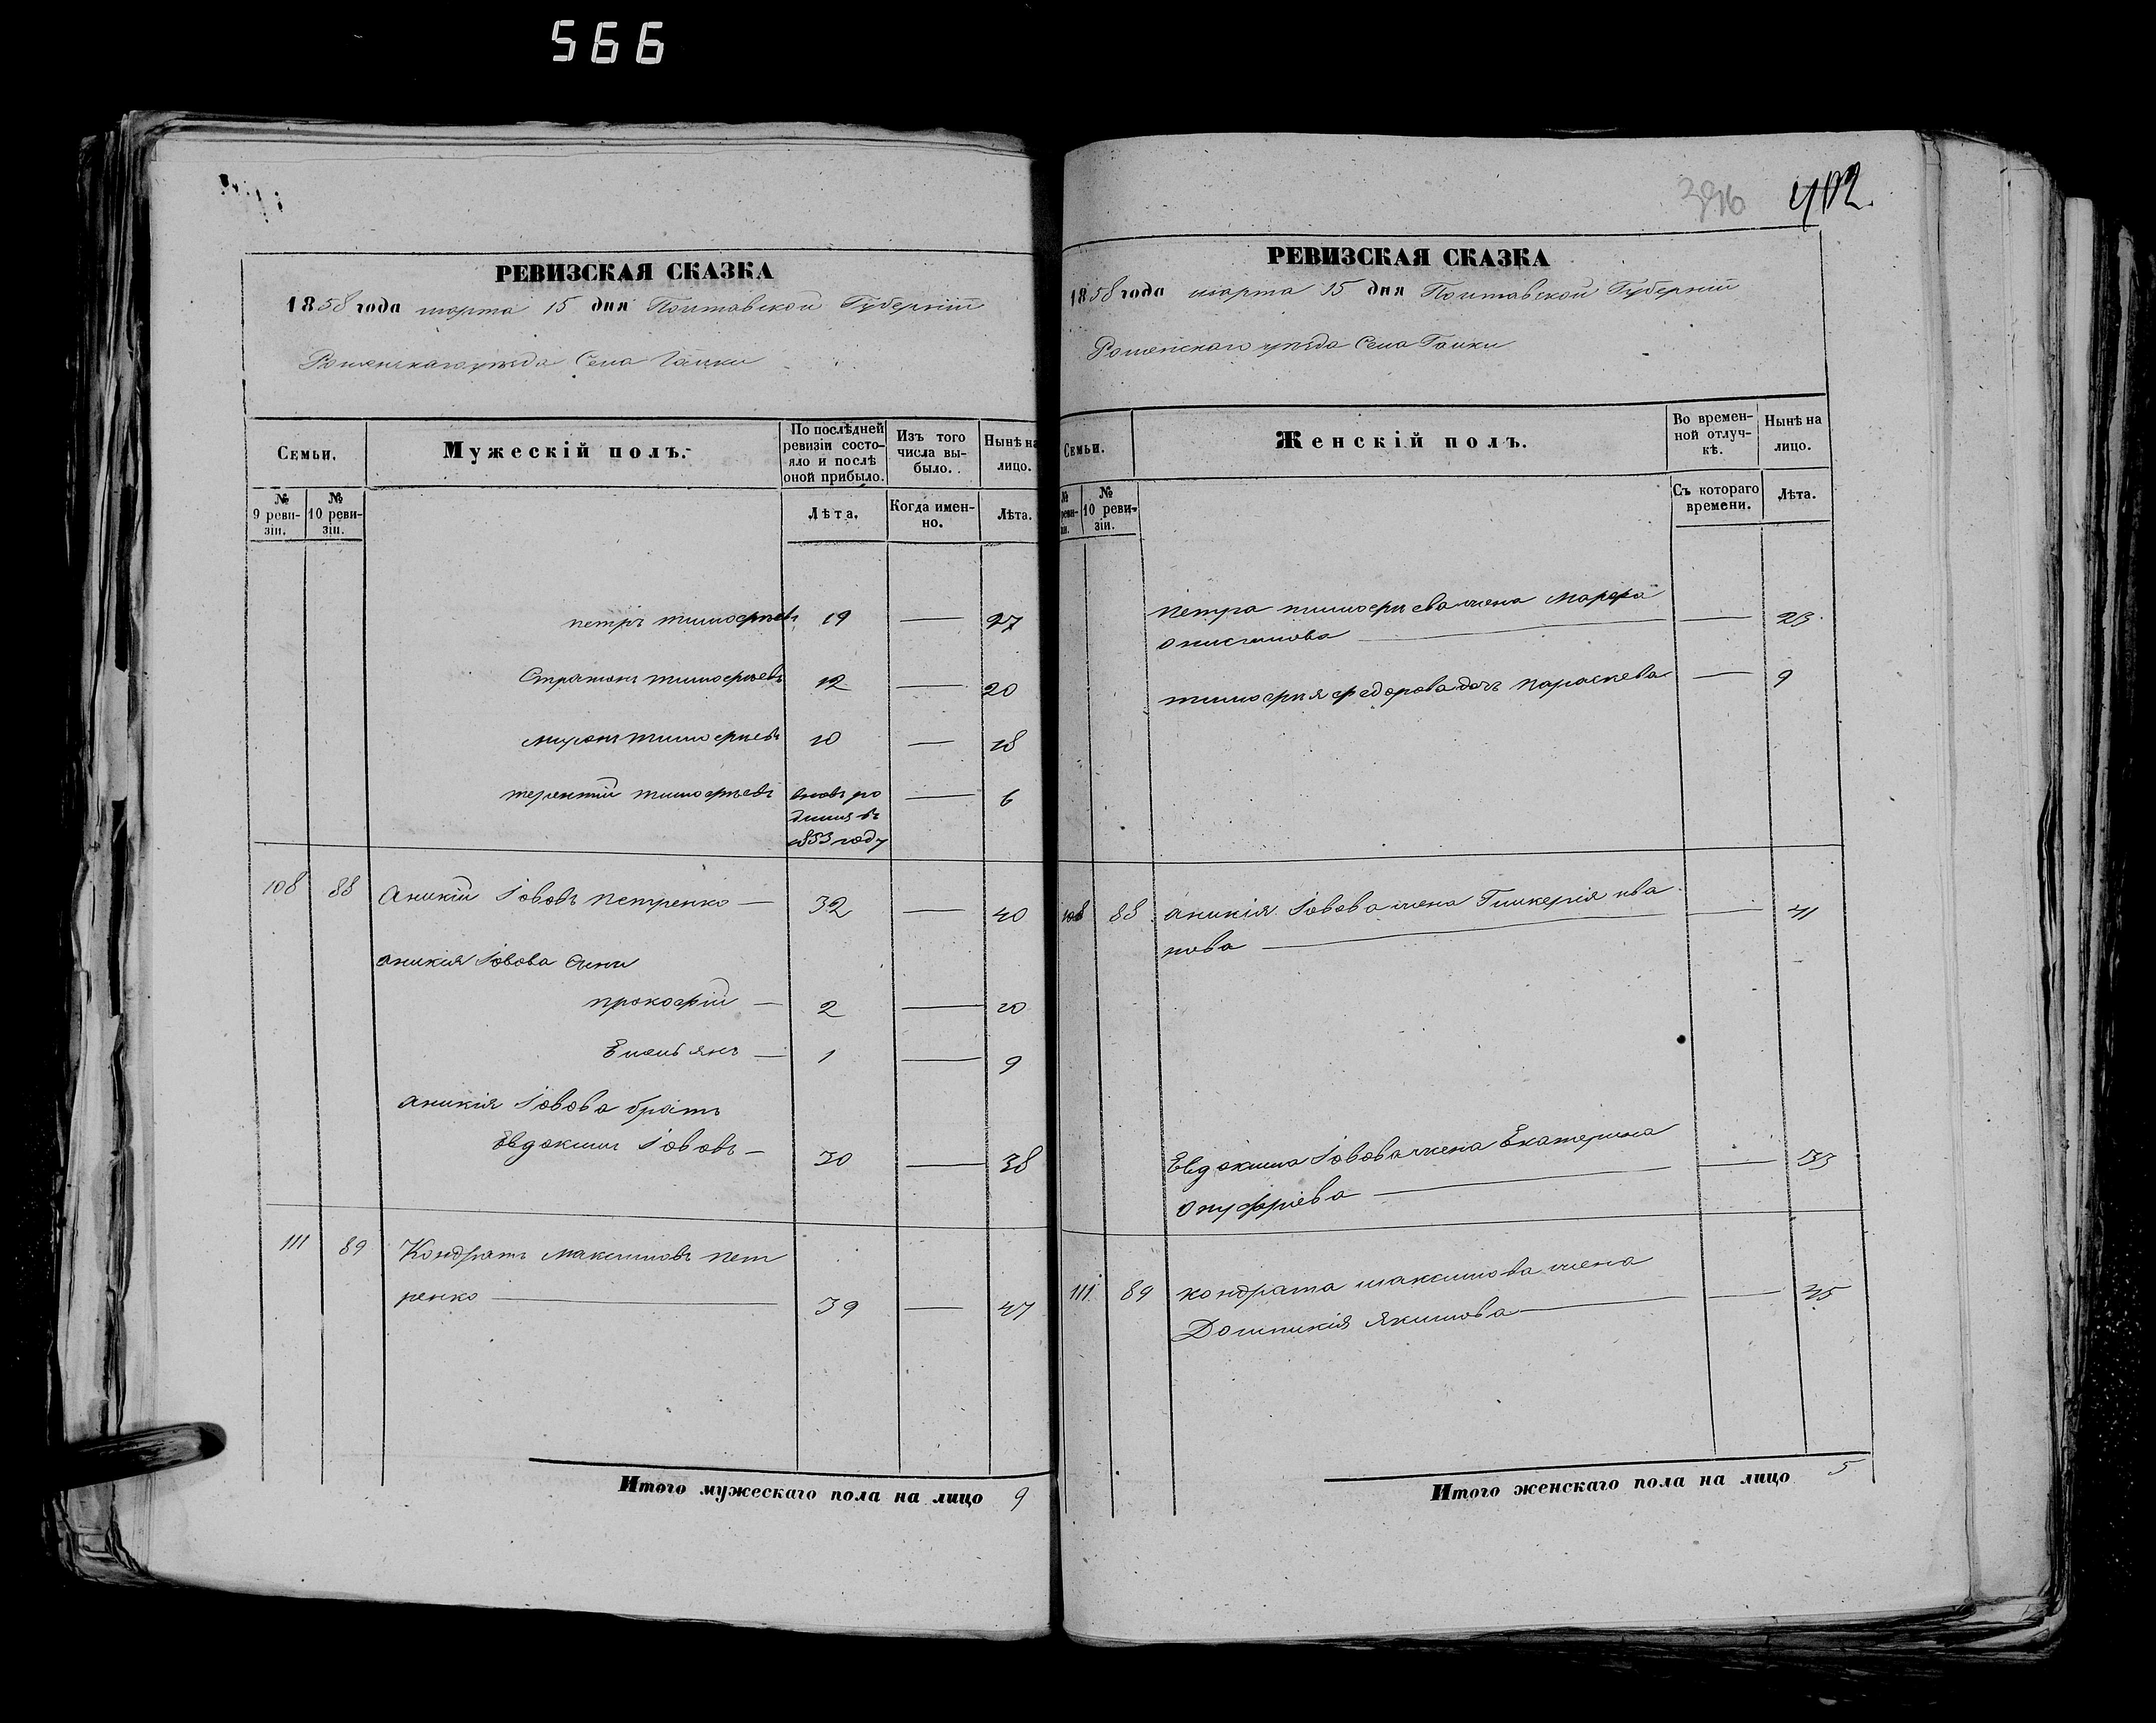 566
РЕВИЗСКАЯ СКАЗКА
1858 года марта 15 дня Полтавской Губерніи
Роменскаго уезда Села Галки
Семьи.
Мужескій полъ.
По послѣдней ревизіи состояло и послѣ оной прибыло.
Изъ того числа выбыло.
Нынѣ на лицо.
№ 9 ревизіи.
№ 10 ревизіи.
Лѣта.
Когда именно.
Лѣта.
петръ тимофѣевъ 19 — 27
Стратонъ тимофѣевъ 12 — 20
миронъ тимофѣевъ 10 — 18
терентій тимофѣевъ вновь ро — 6
дился въ
1853 году
108 88 Аникій Іововъ петренко — 32 — 40
аникия Іовова Сыни
прокофій — 2 — 10
Емельянъ — 1 — 9
аникія Іовова братъ
Евдокимъ Іововъ — 30 — 38
111 89 Кондратъ максимовъ пет
ренко — 39 — 47
Итого мужескаго пола на лицо 9
396 402
РЕВИЗСКАЯ СКАЗКА
1858 года марта 15 дня Полтавской Губерніи
Роменскаго уезда Села Галки
Семьи.
Женскій полъ.
Во временной отлучкѣ.
Нынѣ на лицо.
№ реви-зіи.
№ 10 ревизіи.
Съ котораго времени.
Лѣта.
петра тимофиева жена Марфа
онисимова — — 23
тимофия федорова дочь параскева — 9
108 88 аникія Іовова жена Гликерія ива — 41
нова —
Евдокима Іовова жена Екатерина — 33
Онуфріева —
111 89 кондрата максимова жена
Домникія Якимова — — 45
Итого женскаго пола на лицо 5